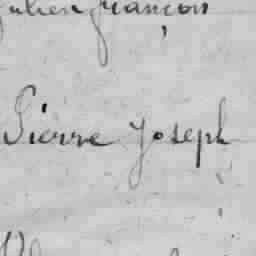 Julien françois
Pierre Joseph